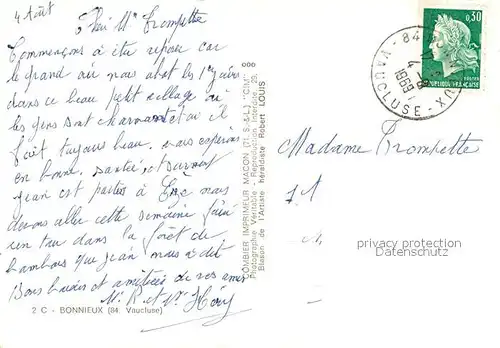 4 Août
Mr Trompette
Commençons à être reposer car
le grand air nous abat les 1er jours
dans ce beau petit village où
les gens sont charmants et où il
fait toujours beau. nous espérons
en bonne santé, et surment
jean est parties à nous
devons aller cette semaine faire
un tau dans la forêt de
bambous que jean nous a dit
Bons baisers et amitiées de vos amis
Mr R et Mme
2 C - BONNIEUX (84. Vaucluse)
COMBIER IMPRIMEUR MACON (71. S.-&-L.) "CIM"
Photographie Véritable - Reproduction Interdite
Blason de l'Artiste héraldiste Robert LOUIS
84
4 - 8
1969
VAUCLUSE
0,30
REPUBLIQUE FRANÇAISE
Madame Trompette
privacy protection
Datenschutz